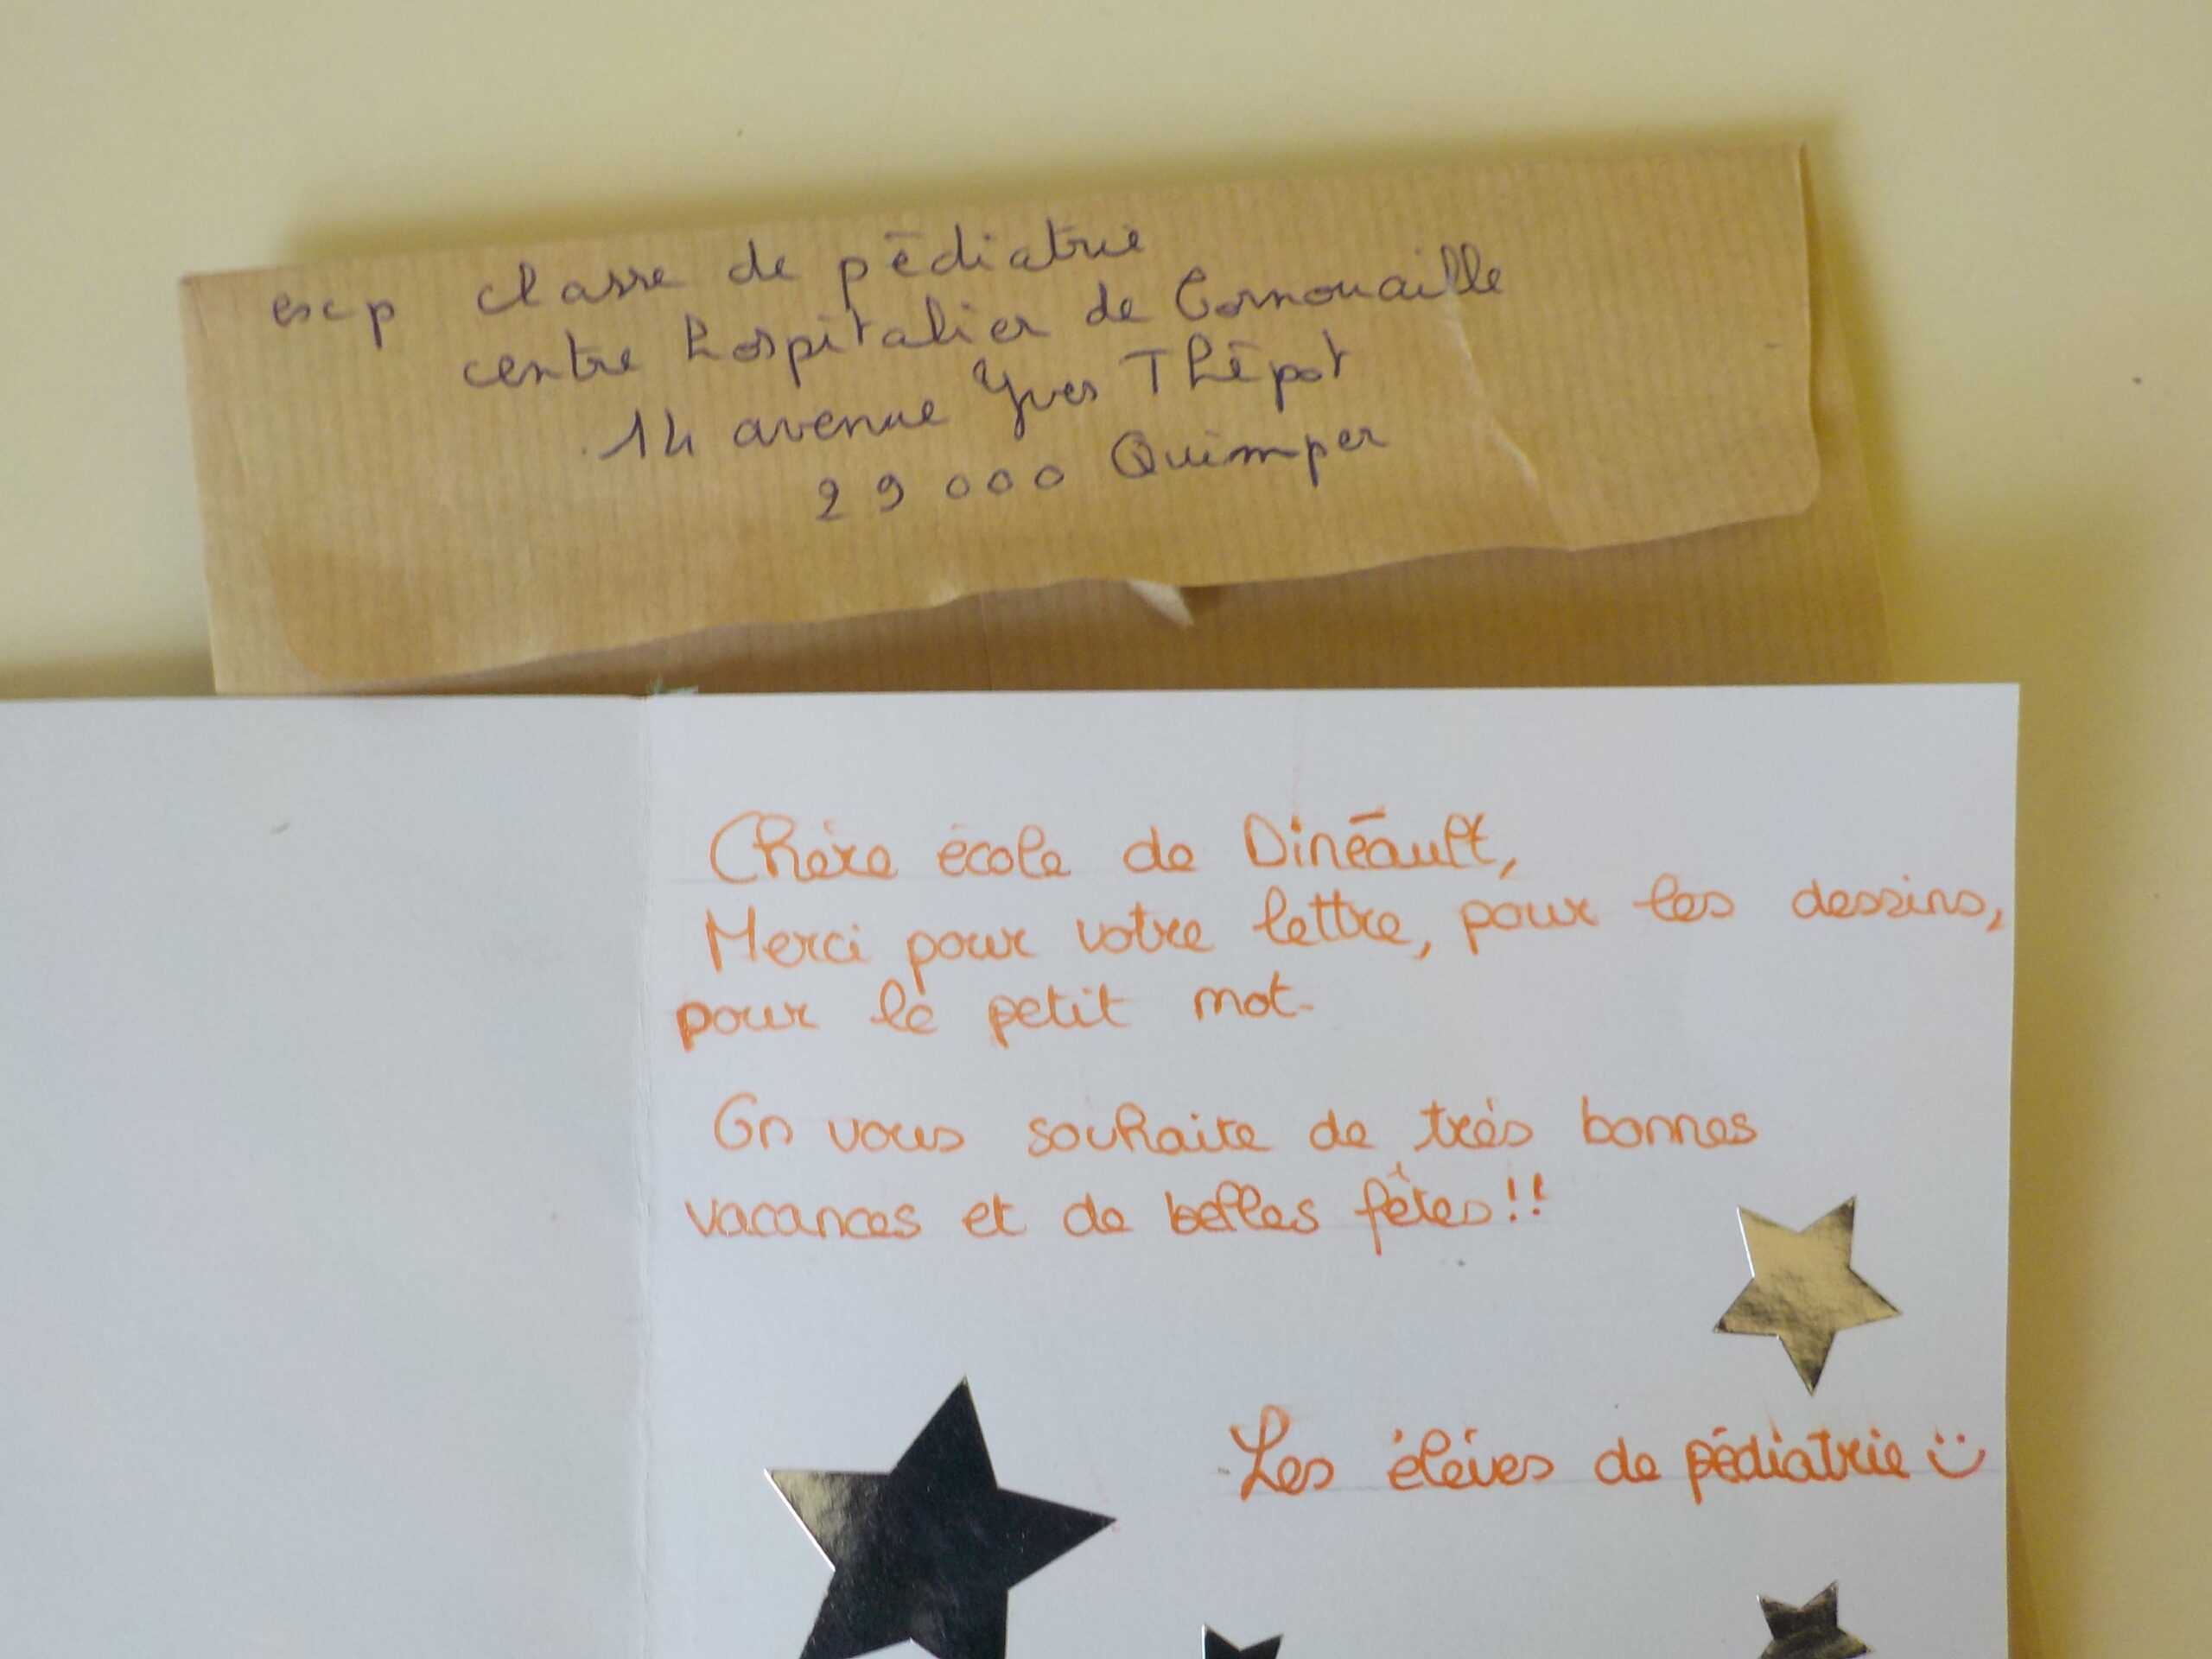 escp classe de pédiatrie
centre hospitalier de Cornouaille
14 avenue Yves Thépot
29000 Quimper
Chère école de Dinéault,
Merci pour votre lettre, pour les dessins,
pour le petit mot.
On vous souhaite de très bonnes
vacances et de belles fêtes!!
Les élèves de pédiatrie :)